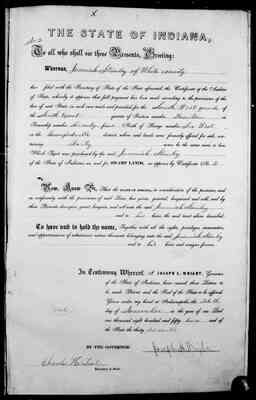 THE STATE OF INDIANA,
To all who shall see these Presents, Greeting:
WHEREAS, Jeremiah Stanley of White county
has filed with the Secretary of State of the State aforesaid, the Certificate of the Auditor
of State, whereby it appears that full payment has been made according to the provisions of the
law of said State in such case made and provided for the South West quarter of
the South East quarter of Section number
in Township number twenty four North of Range number West
in the district of lands where said tracts were formerly offered for sale, containing
acres be the same more or less,
which Tract was purchased by the said Jeremiah Stanley
of the State of Indiana as and for SWAMP LANDS, as appears by Certificate No.
Now, Know Ye, That the STATE OF INDIANA, in consideration of the premises, and
in conformity with the provisions of said Law, has given, granted, bargained and sold, and by
these Presents does give, grant, bargain, and sell unto the said Jeremiah Stanley
and to his heirs the said tract above described.
To have and to hold the same, Together with all the rights, privileges, immunities,
and appurtenances of whatsoever nature thereunto belonging unto the said Jeremiah Stanley
and to his heirs and assigns forever.
In Testimony Whereof, I, JOSEPH A. WRIGHT, Governor
of the State of Indiana, have caused these Letters to
be made Patent and the Seal of the State to be affixed.
Given under my hand at Indianapolis, the
day of in the year of our Lord
one thousand eight hundred and fifty and of the
State the thirty
BY THE GOVERNOR:
Joseph A. Wright
Secretary of State.